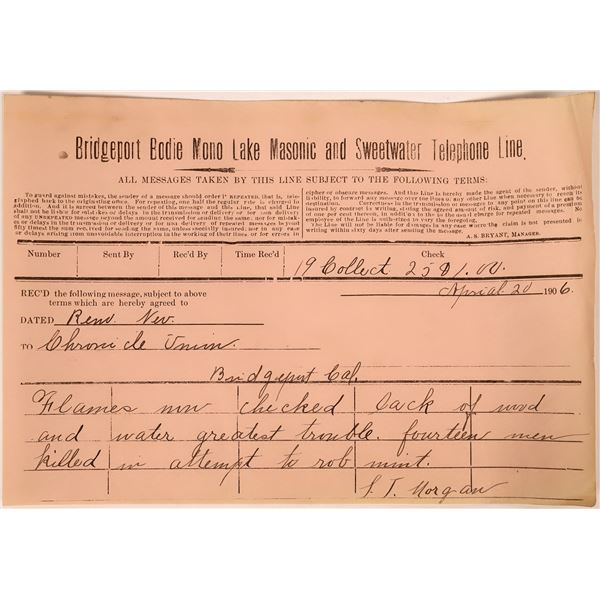 Bridgeport Bodie Mono Lake Masonic and Sweetwater Telephone Line.
ALL MESSAGES TAKEN BY THIS LINE SUBJECT TO THE FOLLOWING TERMS:
To guard against mistakes, the sender of a message should order it REPEATED, that is, tele-
graphed back to the originating office. For repeating, one half the regular rate is charged in
addition. And it is agreed between the sender of this message and this Line, that said Line
shall not be liable for mistakes or delays in the transmission or delivery or for non delivery
of any UNREPEATED message beyond the amount received for sending the same; nor for mistak-
es or delays in the transmission or delivery or for non delivery of repeated message beyond
fifty times the sum received for sending the same, unless specially insured, nor in any case
or delays arising from unavoidable interruption in the working of their lines or for errors in
cipher or obscure messages. And this Line is hereby made the agent of the sender, without
liability, to forward any message over the lines of any other Line when necessary to reach its
destination. Correctness in the transmission of messages to any point on this line can be
insured by contract in writing, stating the agreed amount of risk, and payment of a premium
of one per cent thereon, in addition to the usual charge for repeated messages. No
employee of the Line is authorized to vary the foregoing.
The Line will not be liable for damages in any case where the claim is not presented in
writing within sixty days after sending the message.
A. S. BRYANT, MANAGER.
Number Sent By Rec'd By Time Rec'd Check
19 Collect 25 1.00.
REC'D the following message, subject to above
terms which are hereby agreed to
April 20 1906.
DATED Reno. Nev.
TO Chronicle Union.
Bridgeport Cal.
Flames now checked lack of wood
and water greatest trouble. fourteen men
killed in attempt to rob mint.
Morgan